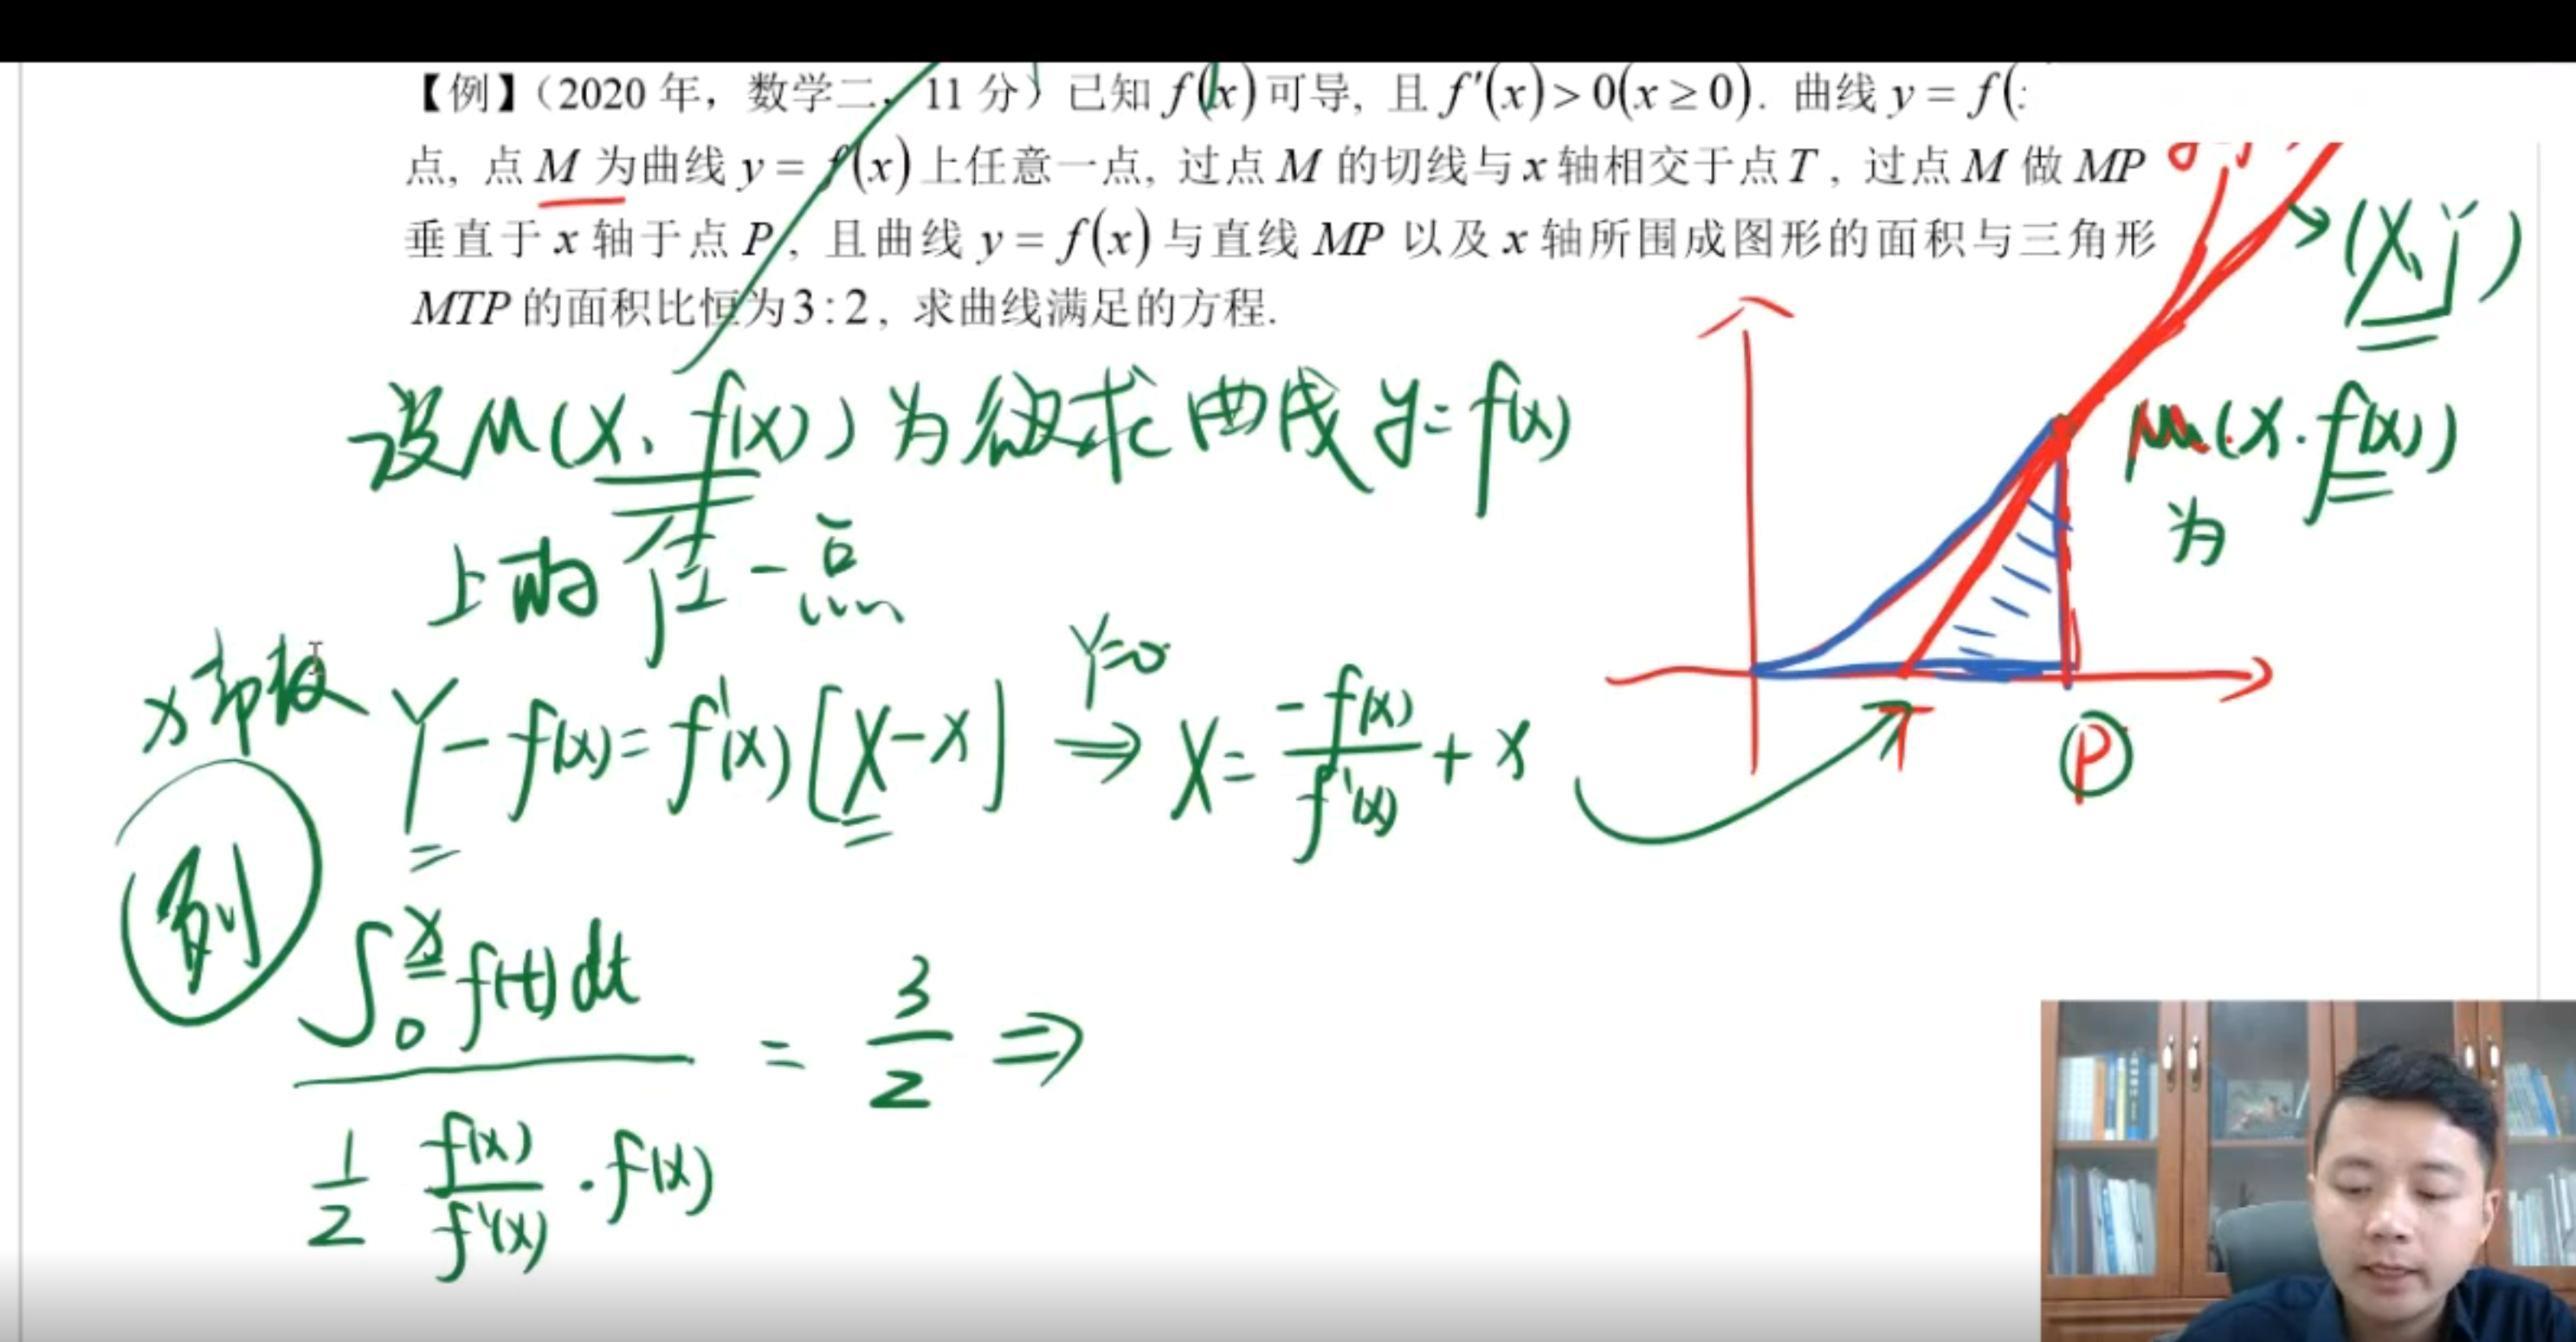 【例】(2020 年，数学二，11 分) 已知 f(x) 可导，且 f′(x) > 0(x ≥ 0)．曲线 y = f(
点，点 M 为曲线 y = f(x) 上任意一点，过点 M 的切线与 x 轴相交于点 T，过点 M 做 MP
垂直于 x 轴于点 P，且曲线 y = f(x) 与直线 MP 以及 x 轴所围成图形的面积与三角形
MTP 的面积比恒为 3 : 2，求曲线满足的方程．
(X, Y)
设 M(x, f(x)) 为欲求曲线 y = f(x)
M(x. f(x))
为
上的任一点
Y=0
Y - f(x) = f′(x) [X - x] ⇒ X = -f(x)/f′(x) + x
T
P
则
∫₀ˣ f(t)dt / (1/2 f(x)/f′(x) · f(x)) = 3/2 ⇒